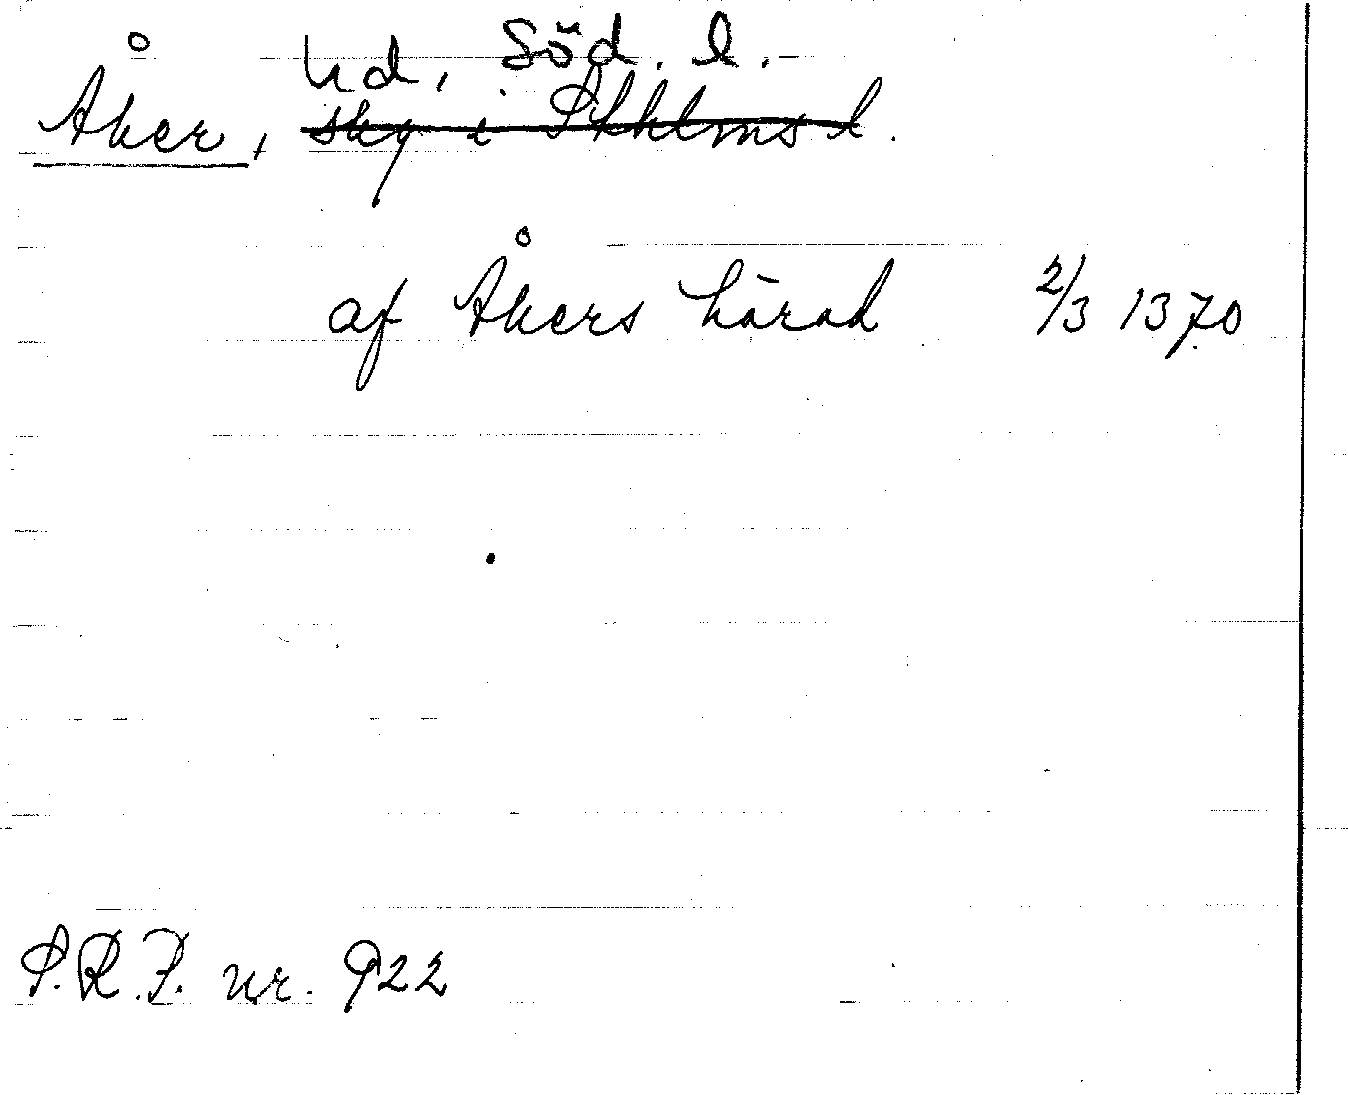 hd, Söd. l.
Åker, skg i Sthlms l.
af Åkers härad 2/3 1370
S.R.P. nr. 922